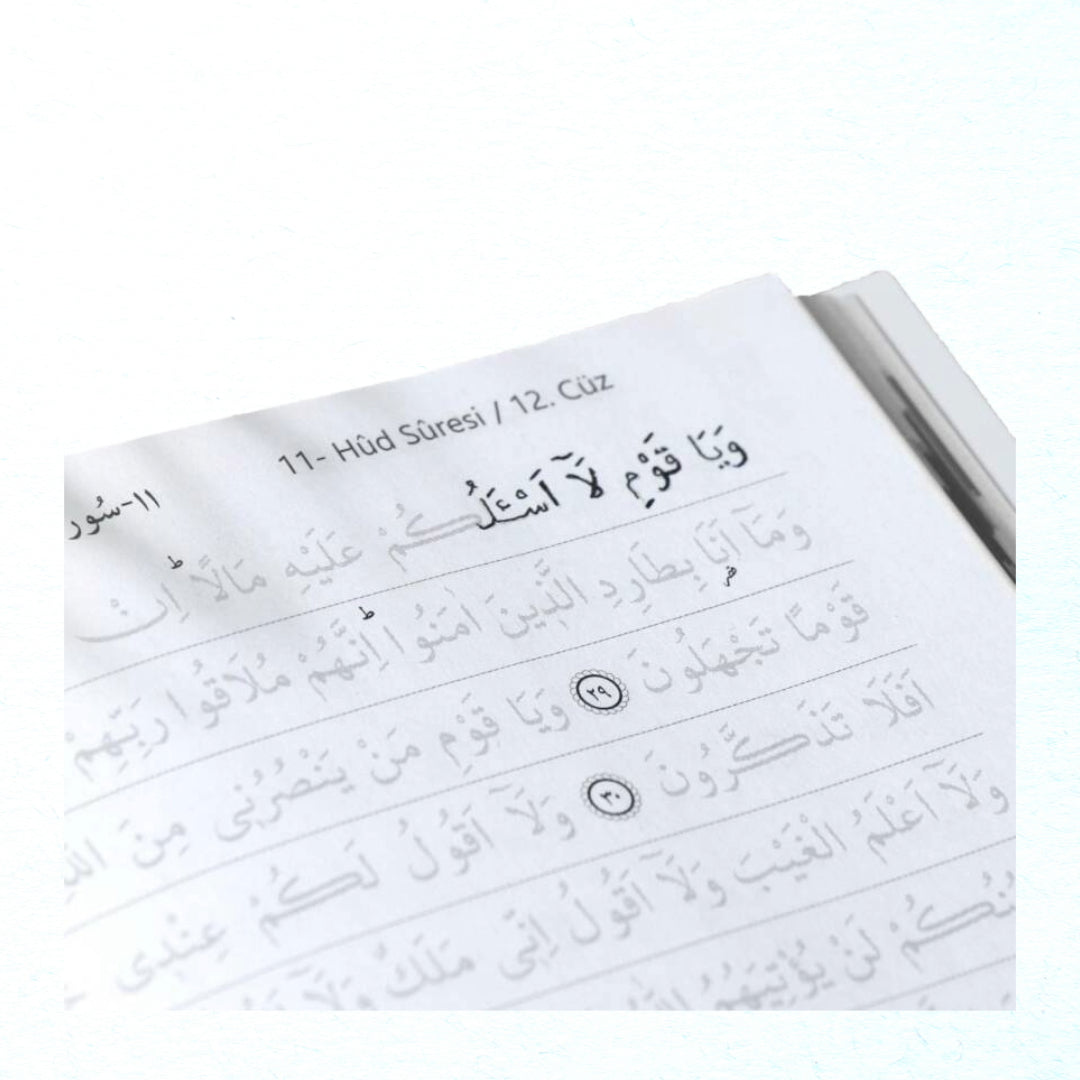 11- Hûd Sûresi / 12. Cüz
١١-سُور
وَيَا قَوْمِ لَآ اَسْـَٔلُكُمْ عَلَيْهِ مَالًاۜ اِنْ
وَمَآ اَنَا۬ بِطَارِدِ الَّذ۪ينَ اٰمَنُواۜ اِنَّهُمْ مُلَاقُوا رَبِّهِمْ
قَوْمًا تَجْهَلُونَ ﴿٢٩﴾ وَيَا قَوْمِ مَنْ يَنْصُرُن۪ي مِنَ
اَفَلَا تَذَكَّرُونَ ﴿٣٠﴾ وَلَآ اَقُولُ لَكُمْ عِنْد۪ي
وَلَآ اَعْلَمُ الْغَيْبَ وَلَآ اَقُولُ اِنّ۪ي مَلَكٌ وَلَآ
لَنْ يُؤْتِيَهُمُ